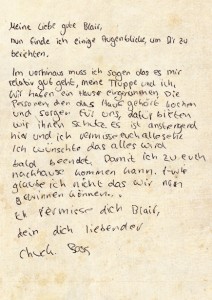 Meine Liebe gute Blair,
nun finde ich einige Augenblicke, um Dir zu
berichten.
Im vorhinaus muss ich sagen das es mir
relativ gut geht, meine Truppe und ich,
wir haben ein Haus eingenommen Die
Personen den das Haus gehört kochen
und sorgen für uns, dafür bieten
wir ihnen Schutz. Es ist anstrengend
hier und ich vermisse euch alle sehr
Ich wünschte das alles wird
bald beendet. Damit ich zu euch
nachhause kommen kann. Ich
glaube ich nicht das wir
gewinnen können...
Ich vermisse dich Blair,
dein dich liebender
Chuck. Bass